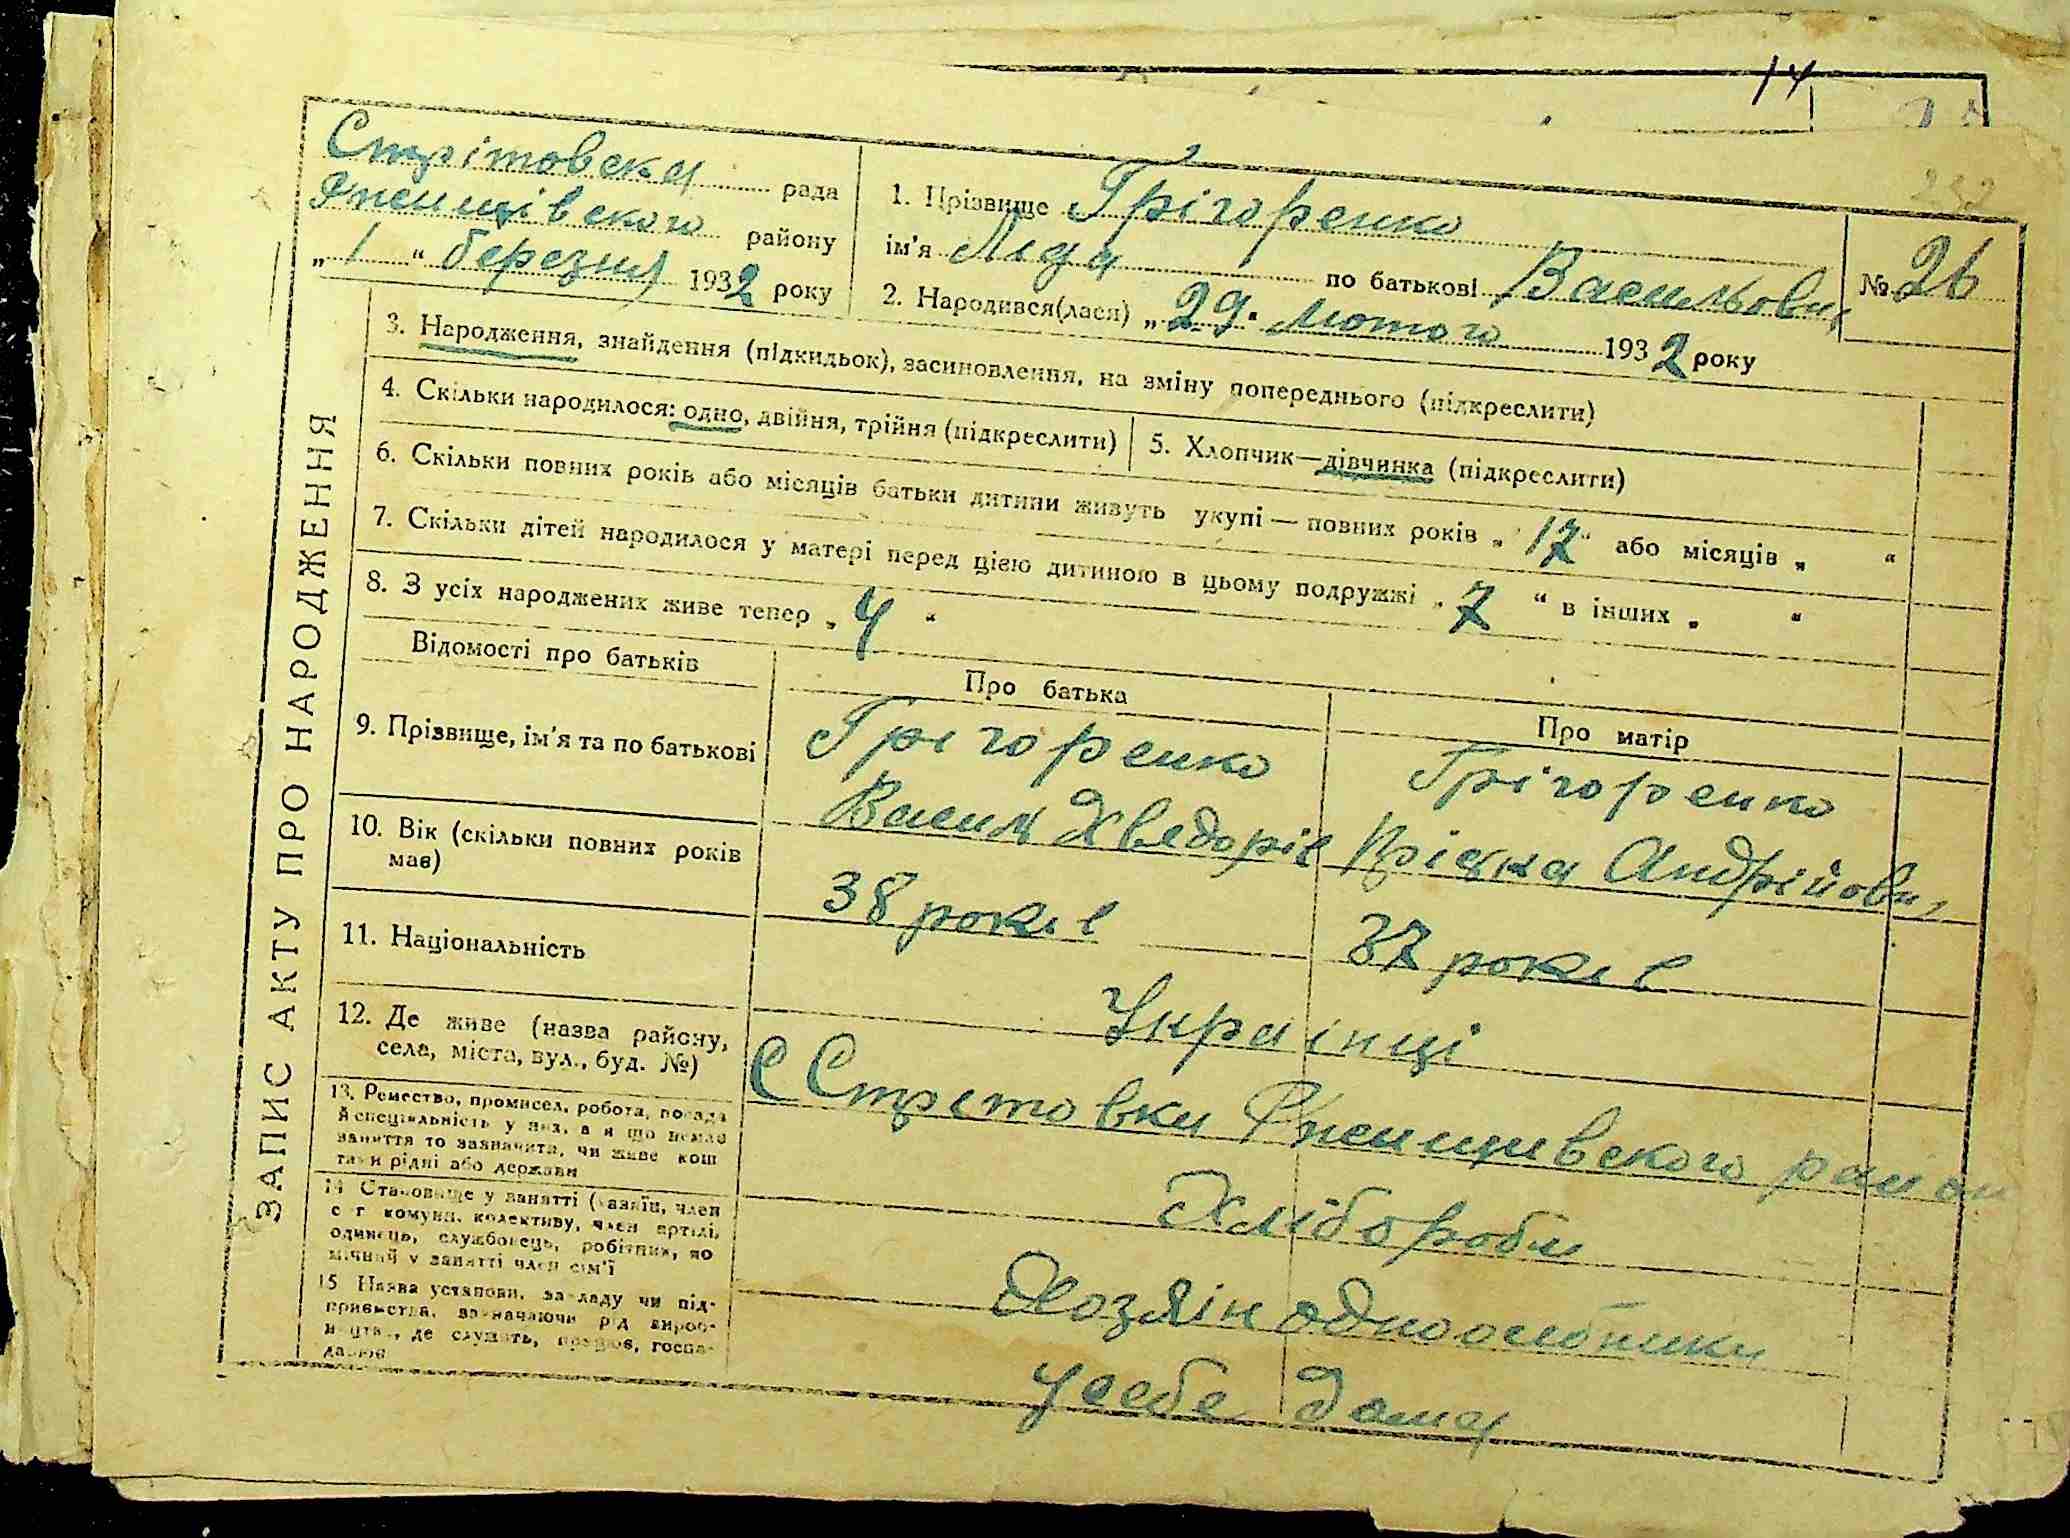 14
232
Стрітовска рада
Ржищівского району
„ 1 “ березня 1932 року
1. Прізвище Грігоренко
ім'я Ліда по батькові Васильовн
№ 26
2. Народився(лася) „ 29 “ лютого 1932 року
3. Народження, знайдення (підкидьок), засиновлення, на зміну попереднього (підкреслити)
4. Скільки народилося: одно, двійня, трійня (підкреслити)
5. Хлопчик—дівчинка (підкреслити)
6. Скільки повних років або місяців батьки дитини живуть укупі — повних років „ 17 “ або місяців „ “
7. Скільки дітей народилося у матері перед цією дитиною в цьому подружжі „ 7 “ в інших „ “
8. З усіх народжених живе тепер „ 4 “
Відомості про батьків
Про батька
Про матір
9. Прізвище, ім'я та по батькові
Грігоренко
Василь Хведорів
Грігоренко
Пріська Андрійовн
10. Вік (скільки повних років
має)
38 років
37 років
11. Національність
Українці
12. Де живе (назва району,
села, міста, вул., буд. №)
С Стрітовки Ржищивского район
13. Ремество, промисел, робота, посада
й спеціяльність у них, а якщо немає
заняття то зазначити, чи живе кош
том рідні або держави
Хлібороби
14 Становище у занятті (хазяїн, член
с г комуни, колективу, член артілі,
одинець, службовець, робітник, по
мічний у занятті член сім'ї
Хозяін одноосібники
15 Назва установи, закладу чи під-
приємства, зазначаючи рід вироб-
ництва, де служить, працює, госпо-
дарює
у себе дома
ЗАПИС АКТУ ПРО НАРОДЖЕННЯ